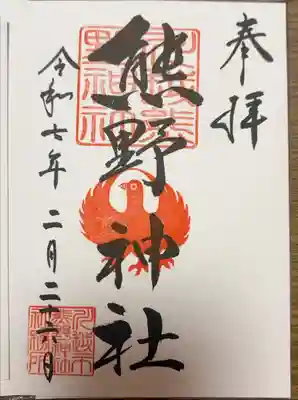 奉拝
熊野神社
令和七年二月二十六日